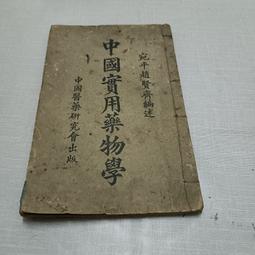 宛平趙賢齊編述
中國實用藥物學
中國醫藥研究會出版